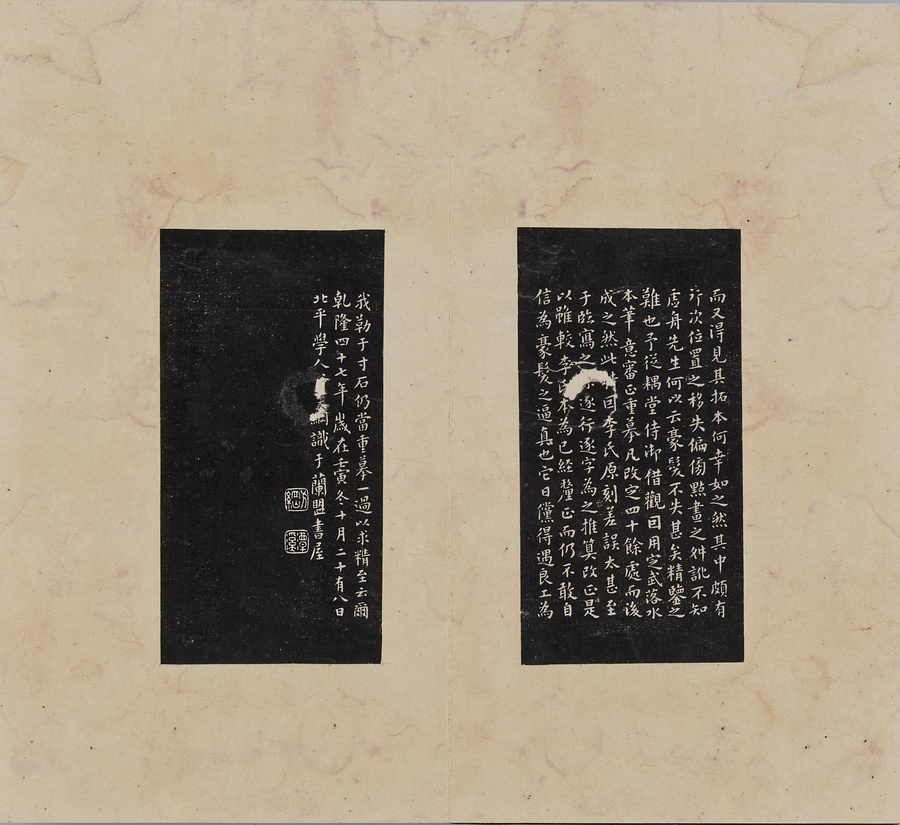 而又得見其拓本何幸如之然其中頗有
行次位置之移失偏傍點畫之舛訛不知
虛舟先生何以云豪髮不失甚矣精鑒之
難也予從耦堂侍御借觀因用定武落水
本筆意審正重摹凡改定四十餘處而後
成之然此因李氏原刻差誤太甚至
于臨寫之逐行逐字為之推算改正是
以雖較李氏本為已經釐正而仍不敢自
信為豪髮之逼真也它日儻得遇良工為
我勒于寸石仍當重摹一過以求精至云爾
乾隆四十七年歲在壬寅冬十月二十有八日
北平學人綱識于蘭盟書屋